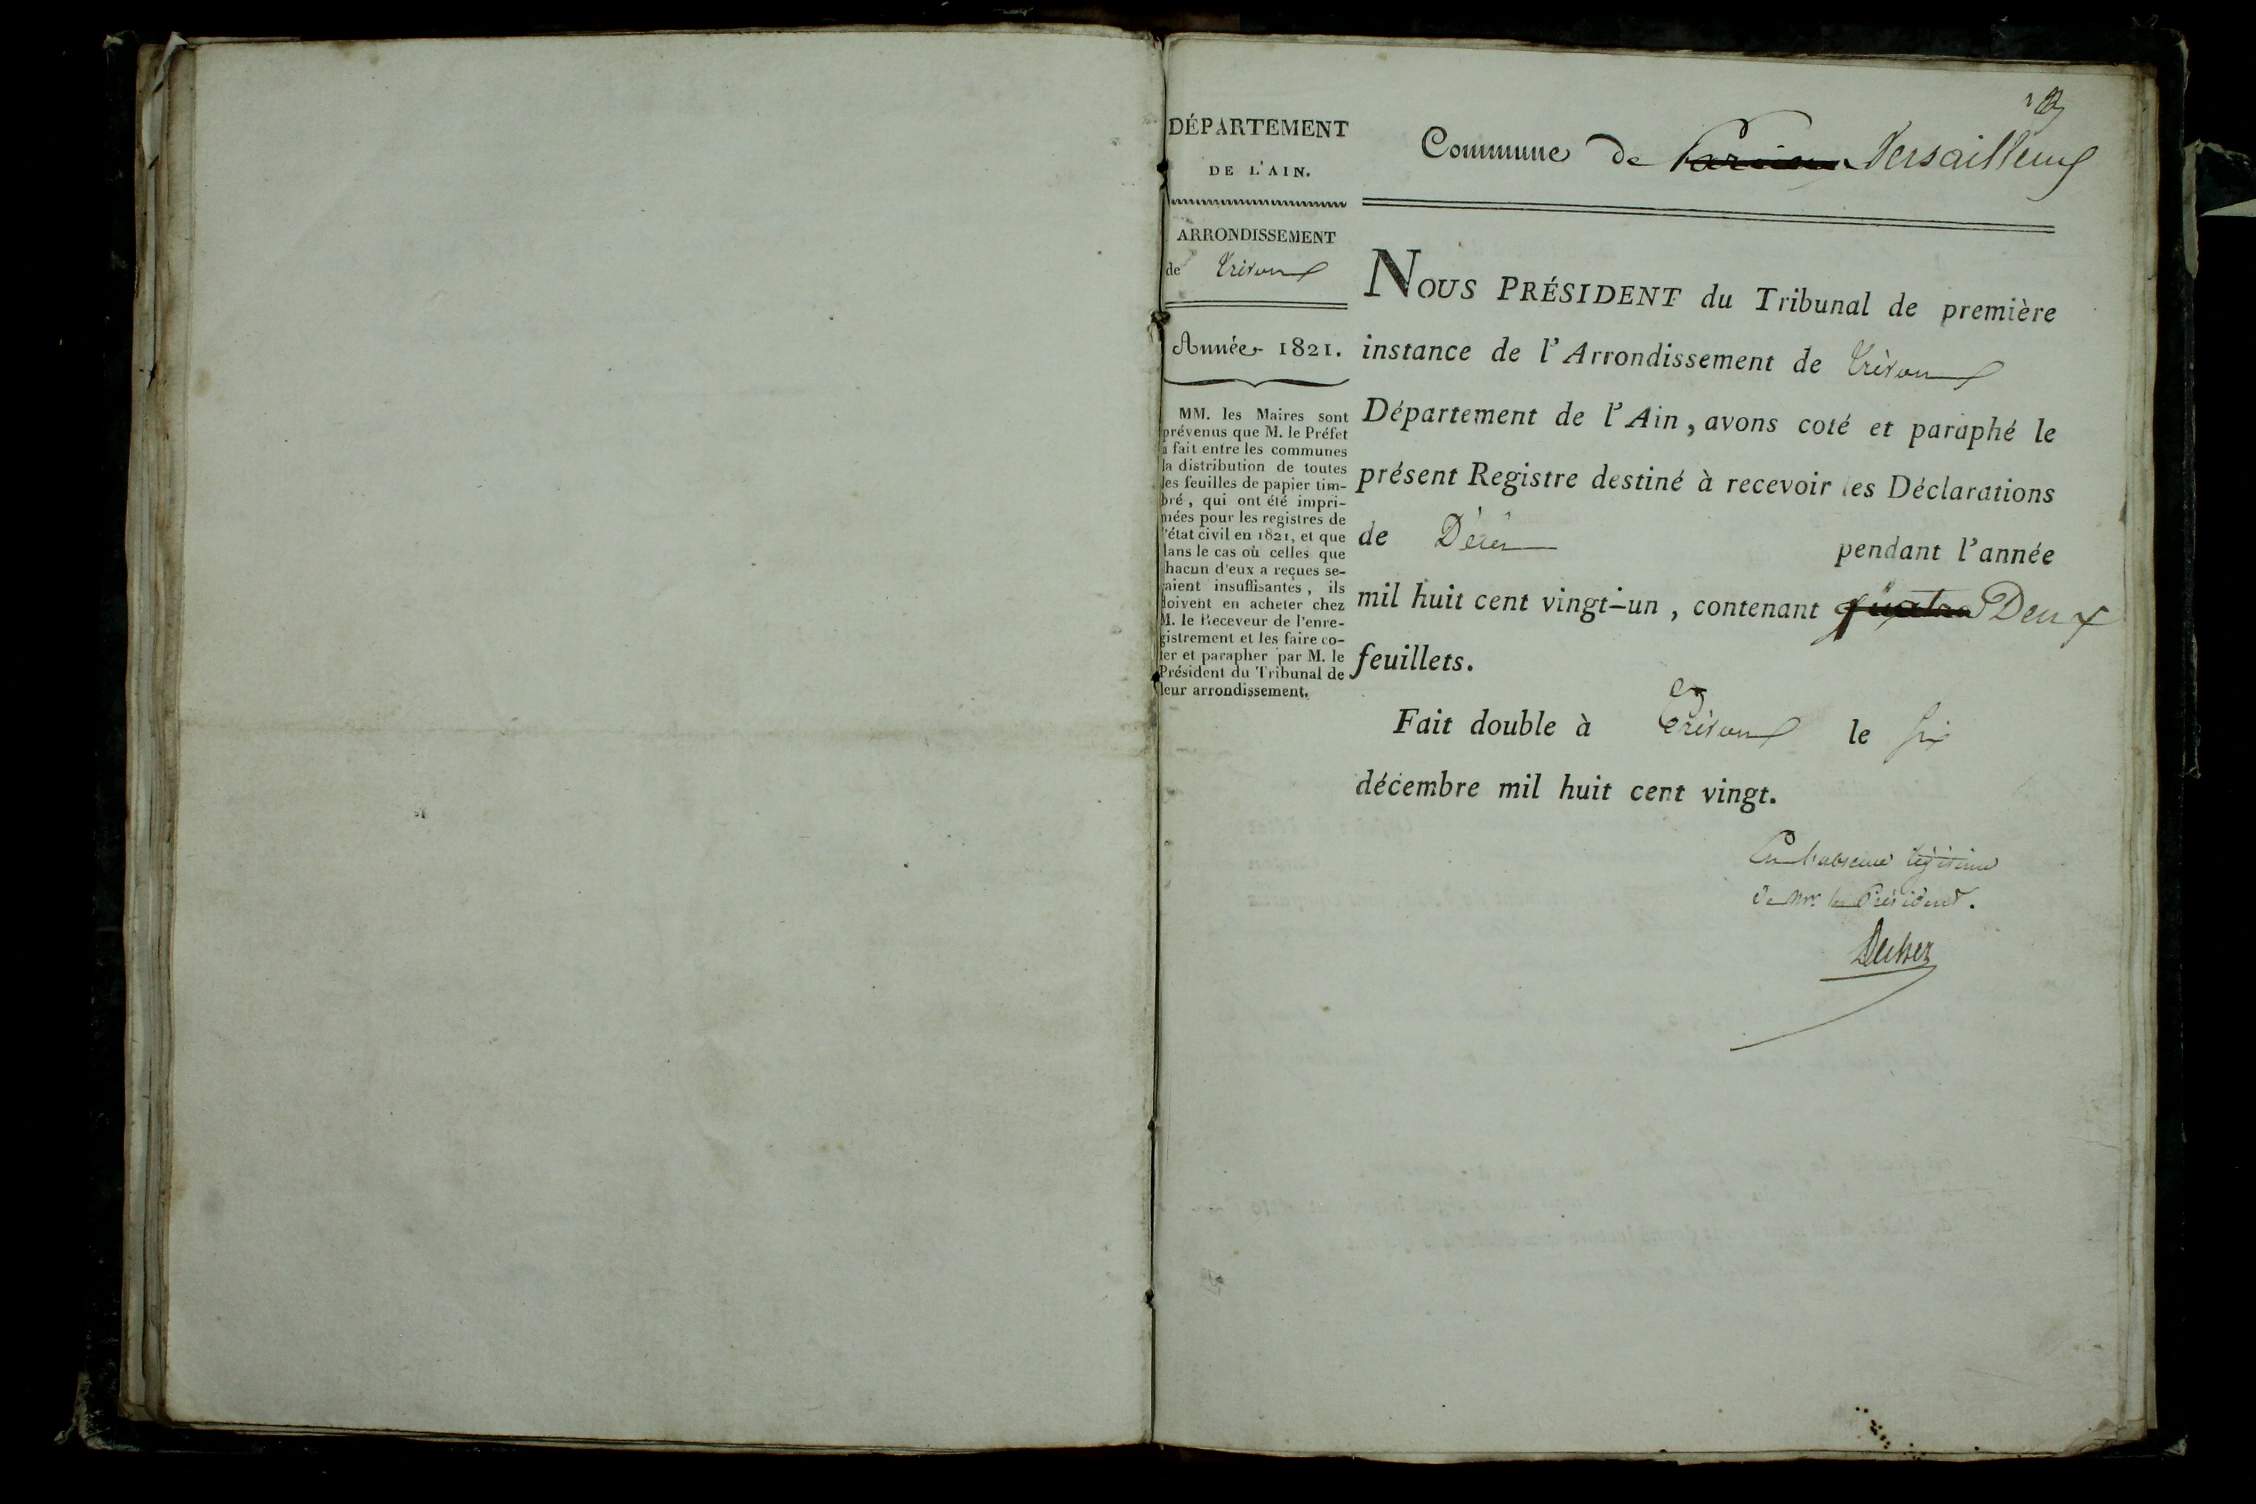 DÉPARTEMENT
DE L'AIN.
ARRONDISSEMENT
de Trévoux
Année 1821.
MM. les Maires sont
prévenus que M. le Préfet
a fait entre les communes
la distribution de toutes
les feuilles de papier tim-
bré, qui ont été impri-
mées pour les registres de
l'état civil en 1821, et que
dans le cas où celles que
chacun d'eux a reçues se-
raient insuffisantes, ils
doivent en acheter chez
M. le Receveur de l'enre-
gistrement et les faire co-
ter et parapher par M. le
Président du Tribunal de
leur arrondissement.
Commune de Parcieux Versailleux
NOUS PRÉSIDENT du Tribunal de première
instance de l'Arrondissement de Trévoux
Département de l'Ain, avons coté et paraphé le
présent Registre destiné à recevoir les Déclarations
de Décès pendant l'année
mil huit cent vingt-un, contenant quatre Deux
feuillets.
Fait double à Trévoux le six
décembre mil huit cent vingt.
En l'absence légitime
de Mr. le Président.